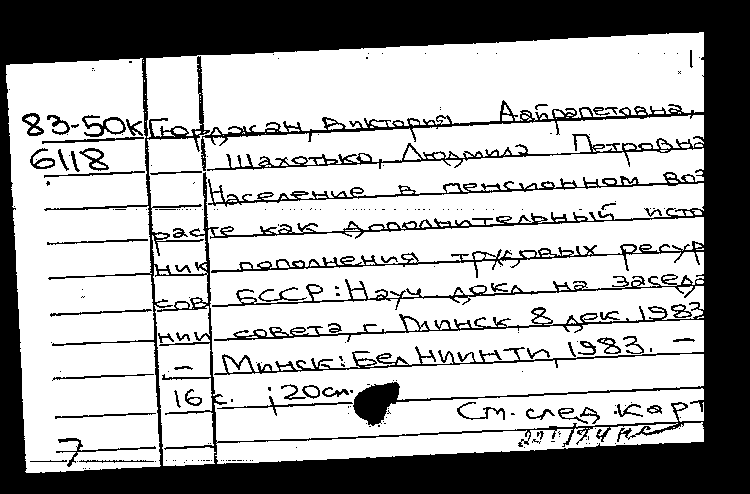 83-50К Гюрджан, Виктория Айрапетовна,
6118 Шахотько, Людмила Петровна
Население в пенсионном воз
расте как дополнительный исто
ник пополнения трудовых ресур
сов БССР: Науч докл. на заседа
нии совета, г. Минск, 8 дек. 1983
– Минск: БелНИИНТИ, 1983. –
16 с. ; 20 см.
См. след. карт
7